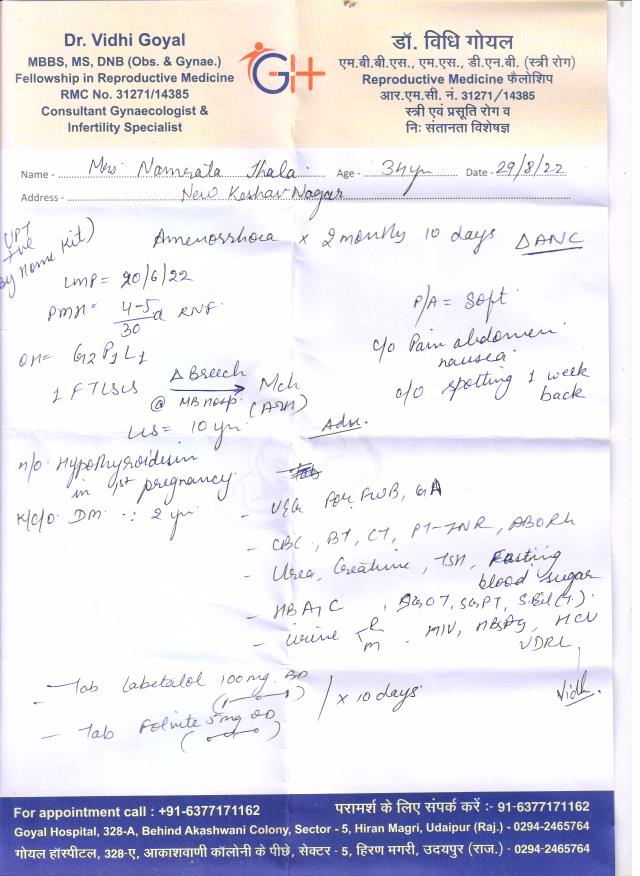 Dr. Vidhi Goyal
MBBS, MS, DNB (Obs. & Gynae.)
Fellowship in Reproductive Medicine
RMC No. 31271/14385
Consultant Gynaecologist &
Infertility Specialist
GH
डॉ. विधि गोयल
एम.बी.बी.एस., एम.एस., डी.एन.बी. (स्त्री रोग)
Reproductive Medicine फैलोशिप
आर.एम.सी. नं. 31271/14385
स्त्री एवं प्रसूति रोग व
निः संतानता विशेषज्ञ
Name - Mrs. Namrata Jhala Age - 34yr Date - 29/8/22
Address - New Keshav Nagar
UPT +ve by home kit)
Amenorrhoea x 2 monthly 10 days Δ ANC
LMP = 20/6/22
PMH = 4-5/30 d RNF
OH = G2 P1 L1
1 FTLSCS Δ Breech @ MB hosp. → Mch
LCB = 10 yr.
P/A = Soft
c/o Pain abdomen
nausea
c/o spotting 1 week
back
H/O Hypothyroidism
in 1st pregnancy.
K/C/O DM :: 2 yr.
Adv.
- USG For FWB, GA
- CBC, BT, CT, PT-INR, ABORh
- Urea, Creatinine, TSH, Fasting
blood sugar
- HBA1C, SGOT, SGPT, S.Bil (T).
- Urine R/M, HIV, HBsAg, HCV
VDRL
- Tab Labetalol 100mg BD
- Tab Folvite 5mg OD
x 10 days
Vidhi
For appointment call : +91-6377171162
परामर्श के लिए संपर्क करें :- 91-6377171162
Goyal Hospital, 328-A, Behind Akashwani Colony, Sector - 5, Hiran Magri, Udaipur (Raj.) - 0294-2465764
गोयल हॉस्पीटल, 328-ए, आकाशवाणी कॉलोनी के पीछे, सेक्टर - 5, हिरण मगरी, उदयपुर (राज.) - 0294-2465764